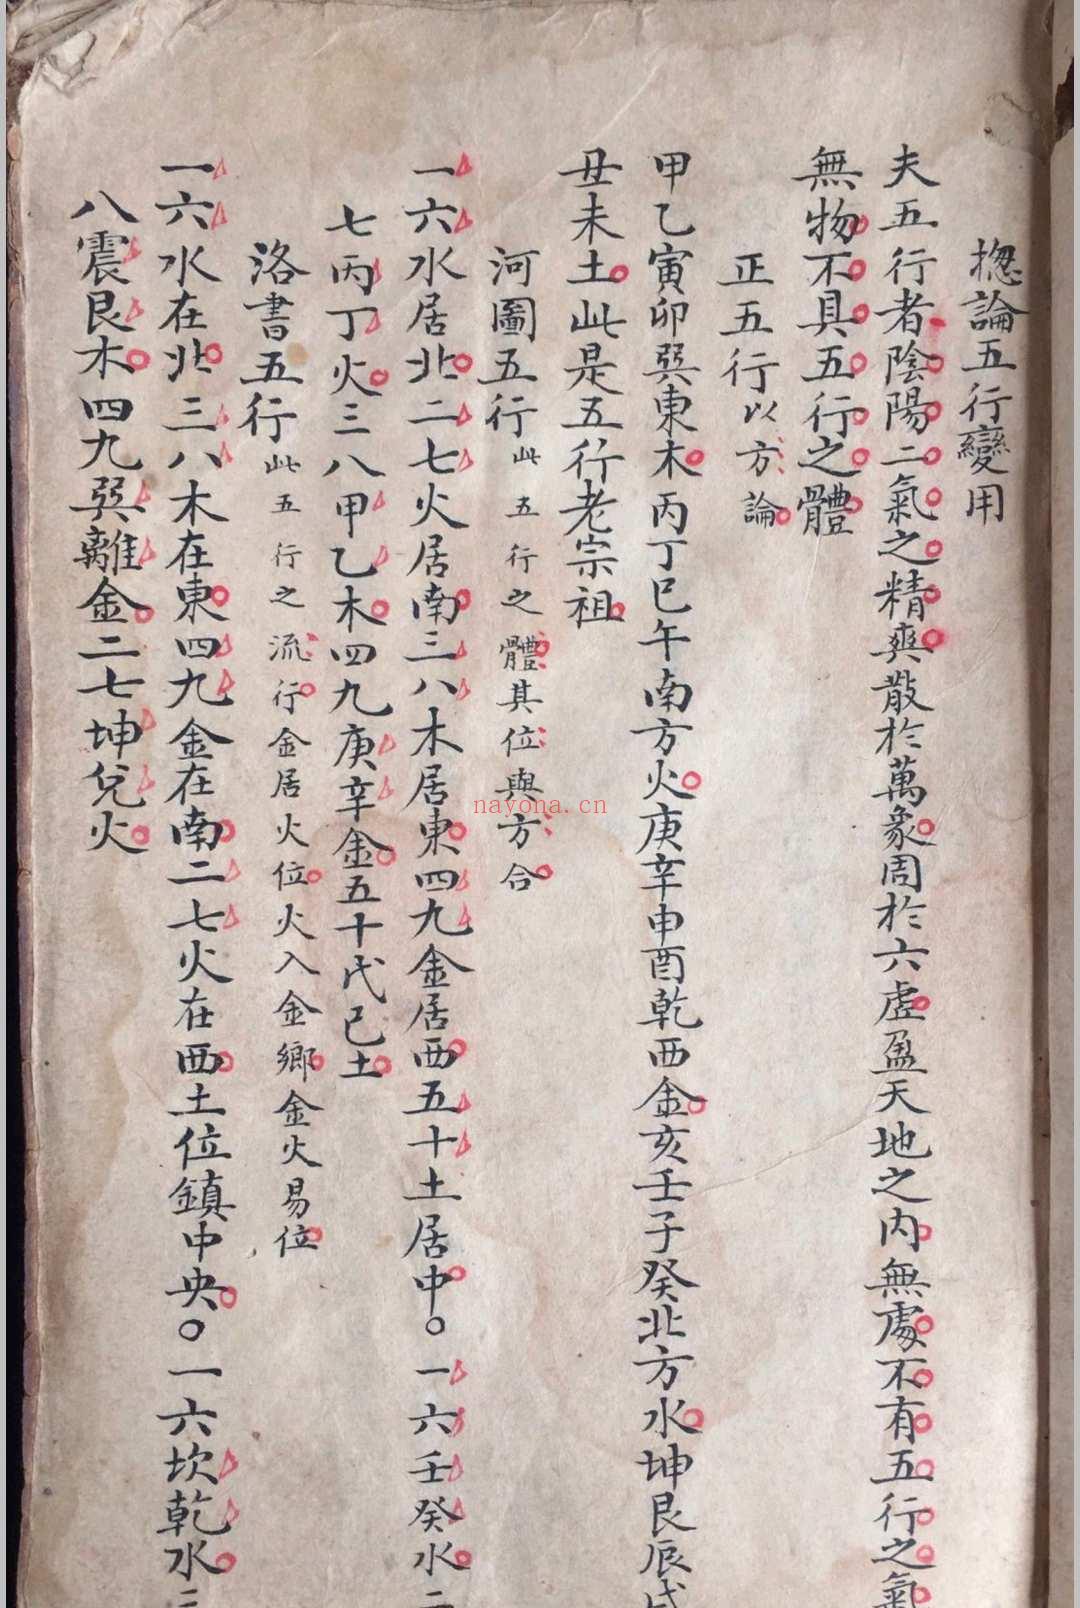 揔論五行變用
夫五行者陰陽二氣之精爽散於萬象周於六虛盈天地之內無處不有五行之氣
無物不具五行之體
正五行以方論
甲乙寅卯巽東木丙丁巳午南方火庚辛申酉乾西金亥壬子癸北方水坤艮辰戌
丑未土此是五行老宗祖
河圖五行此五行之體其位與方合
一六水居北二七火居南三八木居東四九金居西五十土居中〇一六壬癸水二
七丙丁火三八甲乙木四九庚辛金五十戊己土
洛書五行此五行之流行金居火位火入金鄉金火易位
一六水在北三八木在東四九金在南二七火在西土位鎮中央〇一六坎乾水三
八震艮木四九巽離金二七坤兌火
nayona.cn